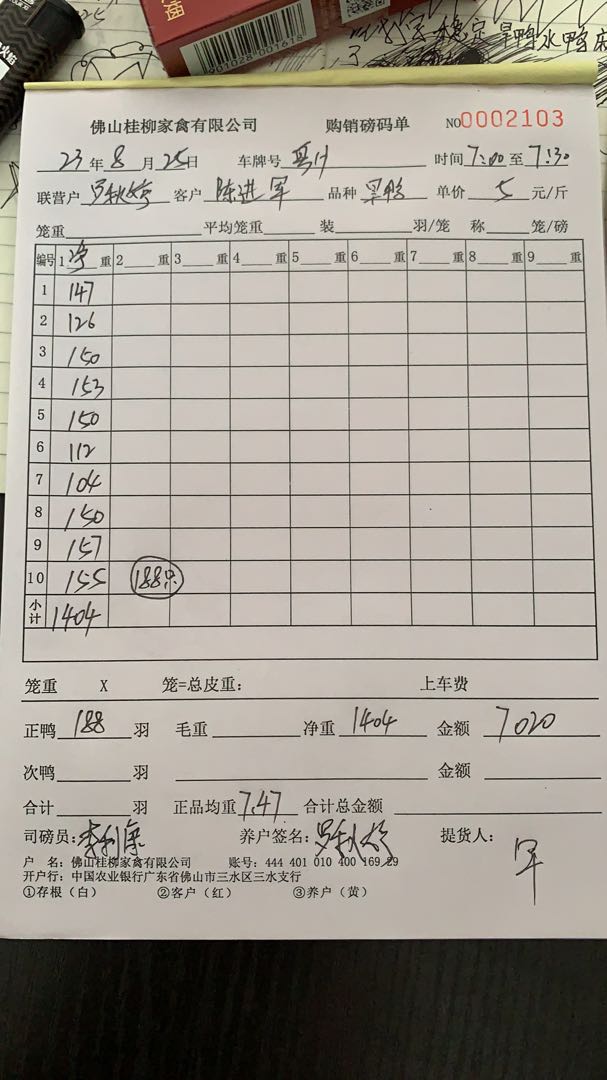 901028-001618
佛山桂柳家禽有限公司 购销磅码单 NO0002103
23年8月25日 车牌号 时间7:00至7:30
联营户罗秋婷 客户陈进军 品种旱鸭 单价5元/斤
笼重 平均笼重 装 羽/笼 称 笼/磅
编号 1净重 2重 3重 4重 5重 6重 7重 8重 9重
1 147
2 126
3 150
4 153
5 150
6 112
7 104
8 150
9 157
10 155 188只
小计 1404
笼重 X 笼=总皮重: 上车费
正鸭188羽 毛重 净重1404 金额7020
次鸭 羽 金额
合计 羽 正品均重7.47 合计总金额
司磅员: 养户签名:罗秋婷 提货人:军
户 名:佛山桂柳家禽有限公司 账号:444 401 010 400 169 29
开户行:中国农业银行广东省佛山市三水区三水支行
①存根(白) ②客户(红) ③养户(黄)